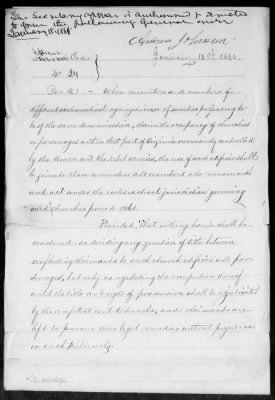 The Secretary of War is authorized & directed
to issue the following General order
January 18, 1866.
Andrew Johnson
January 18th 1866.
General Order
No
Par 21 - When ministers and members of
different ecclesiastical organizations or bodies professing to
be of the same denomination, claim the occupancy of churches
or parsonages within that part of Virginia recently controlled
by the Union and the rebel armies, the use of said edifices shall be
given to those ministers and members who remained
and act under the ecclesiastical jurisdiction governing
said churches prior to 1861.
Provided, That nothing herein shall be
construed as deciding any question of title between
conflicting claimants to such church edifices and par-
sonages, but only as regulating the occupation thereof
until the title and right of possession shall be adjudicated
by the competent civil tribunals, and claimants are
left to pursue their legal remedies without prejudice
in such tribunals.